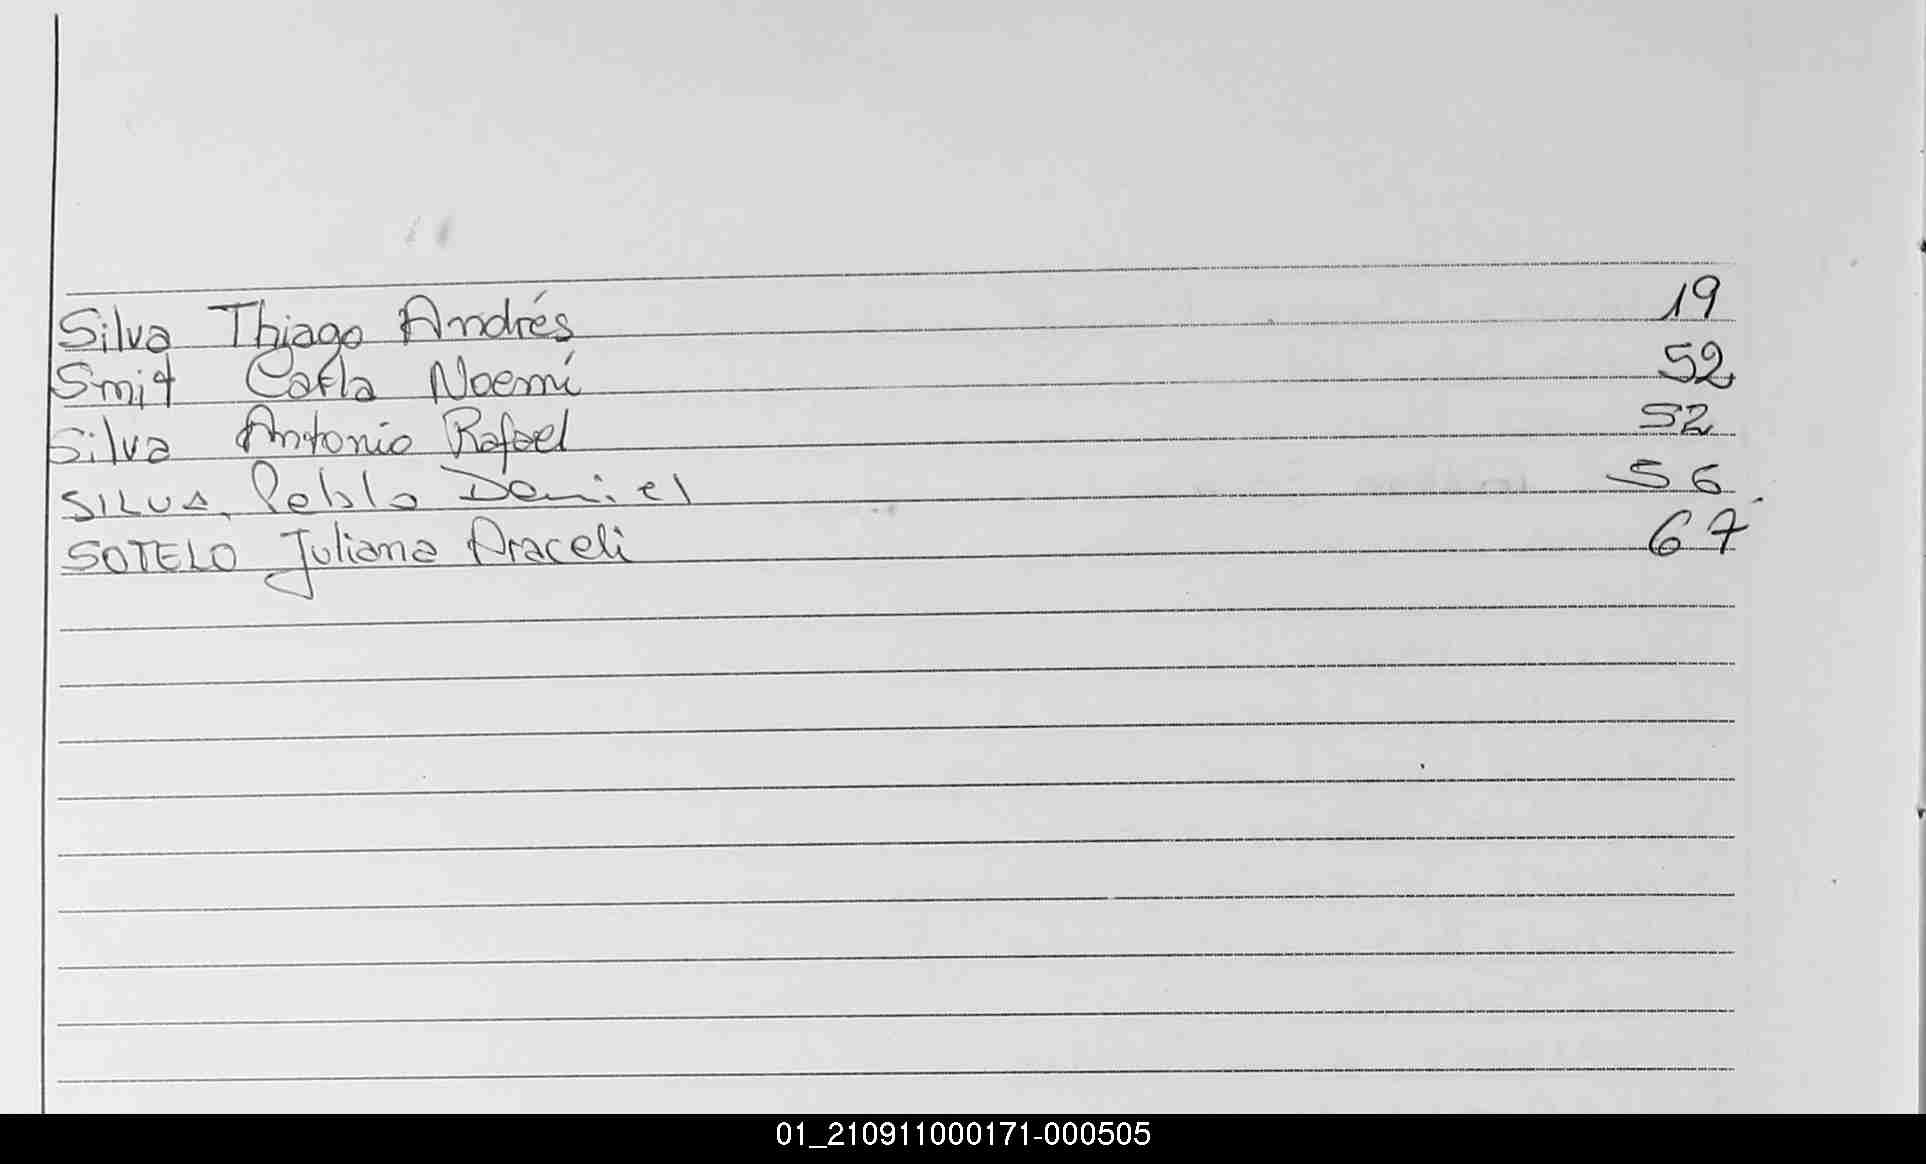 Silva Thiago Andrés 19
Smit Carla Noemí 52
Silva Antonio Rafael 52
SILVA, Pablo Daniel 56
SOTELO Juliana Araceli 67
01_210911000171-000505